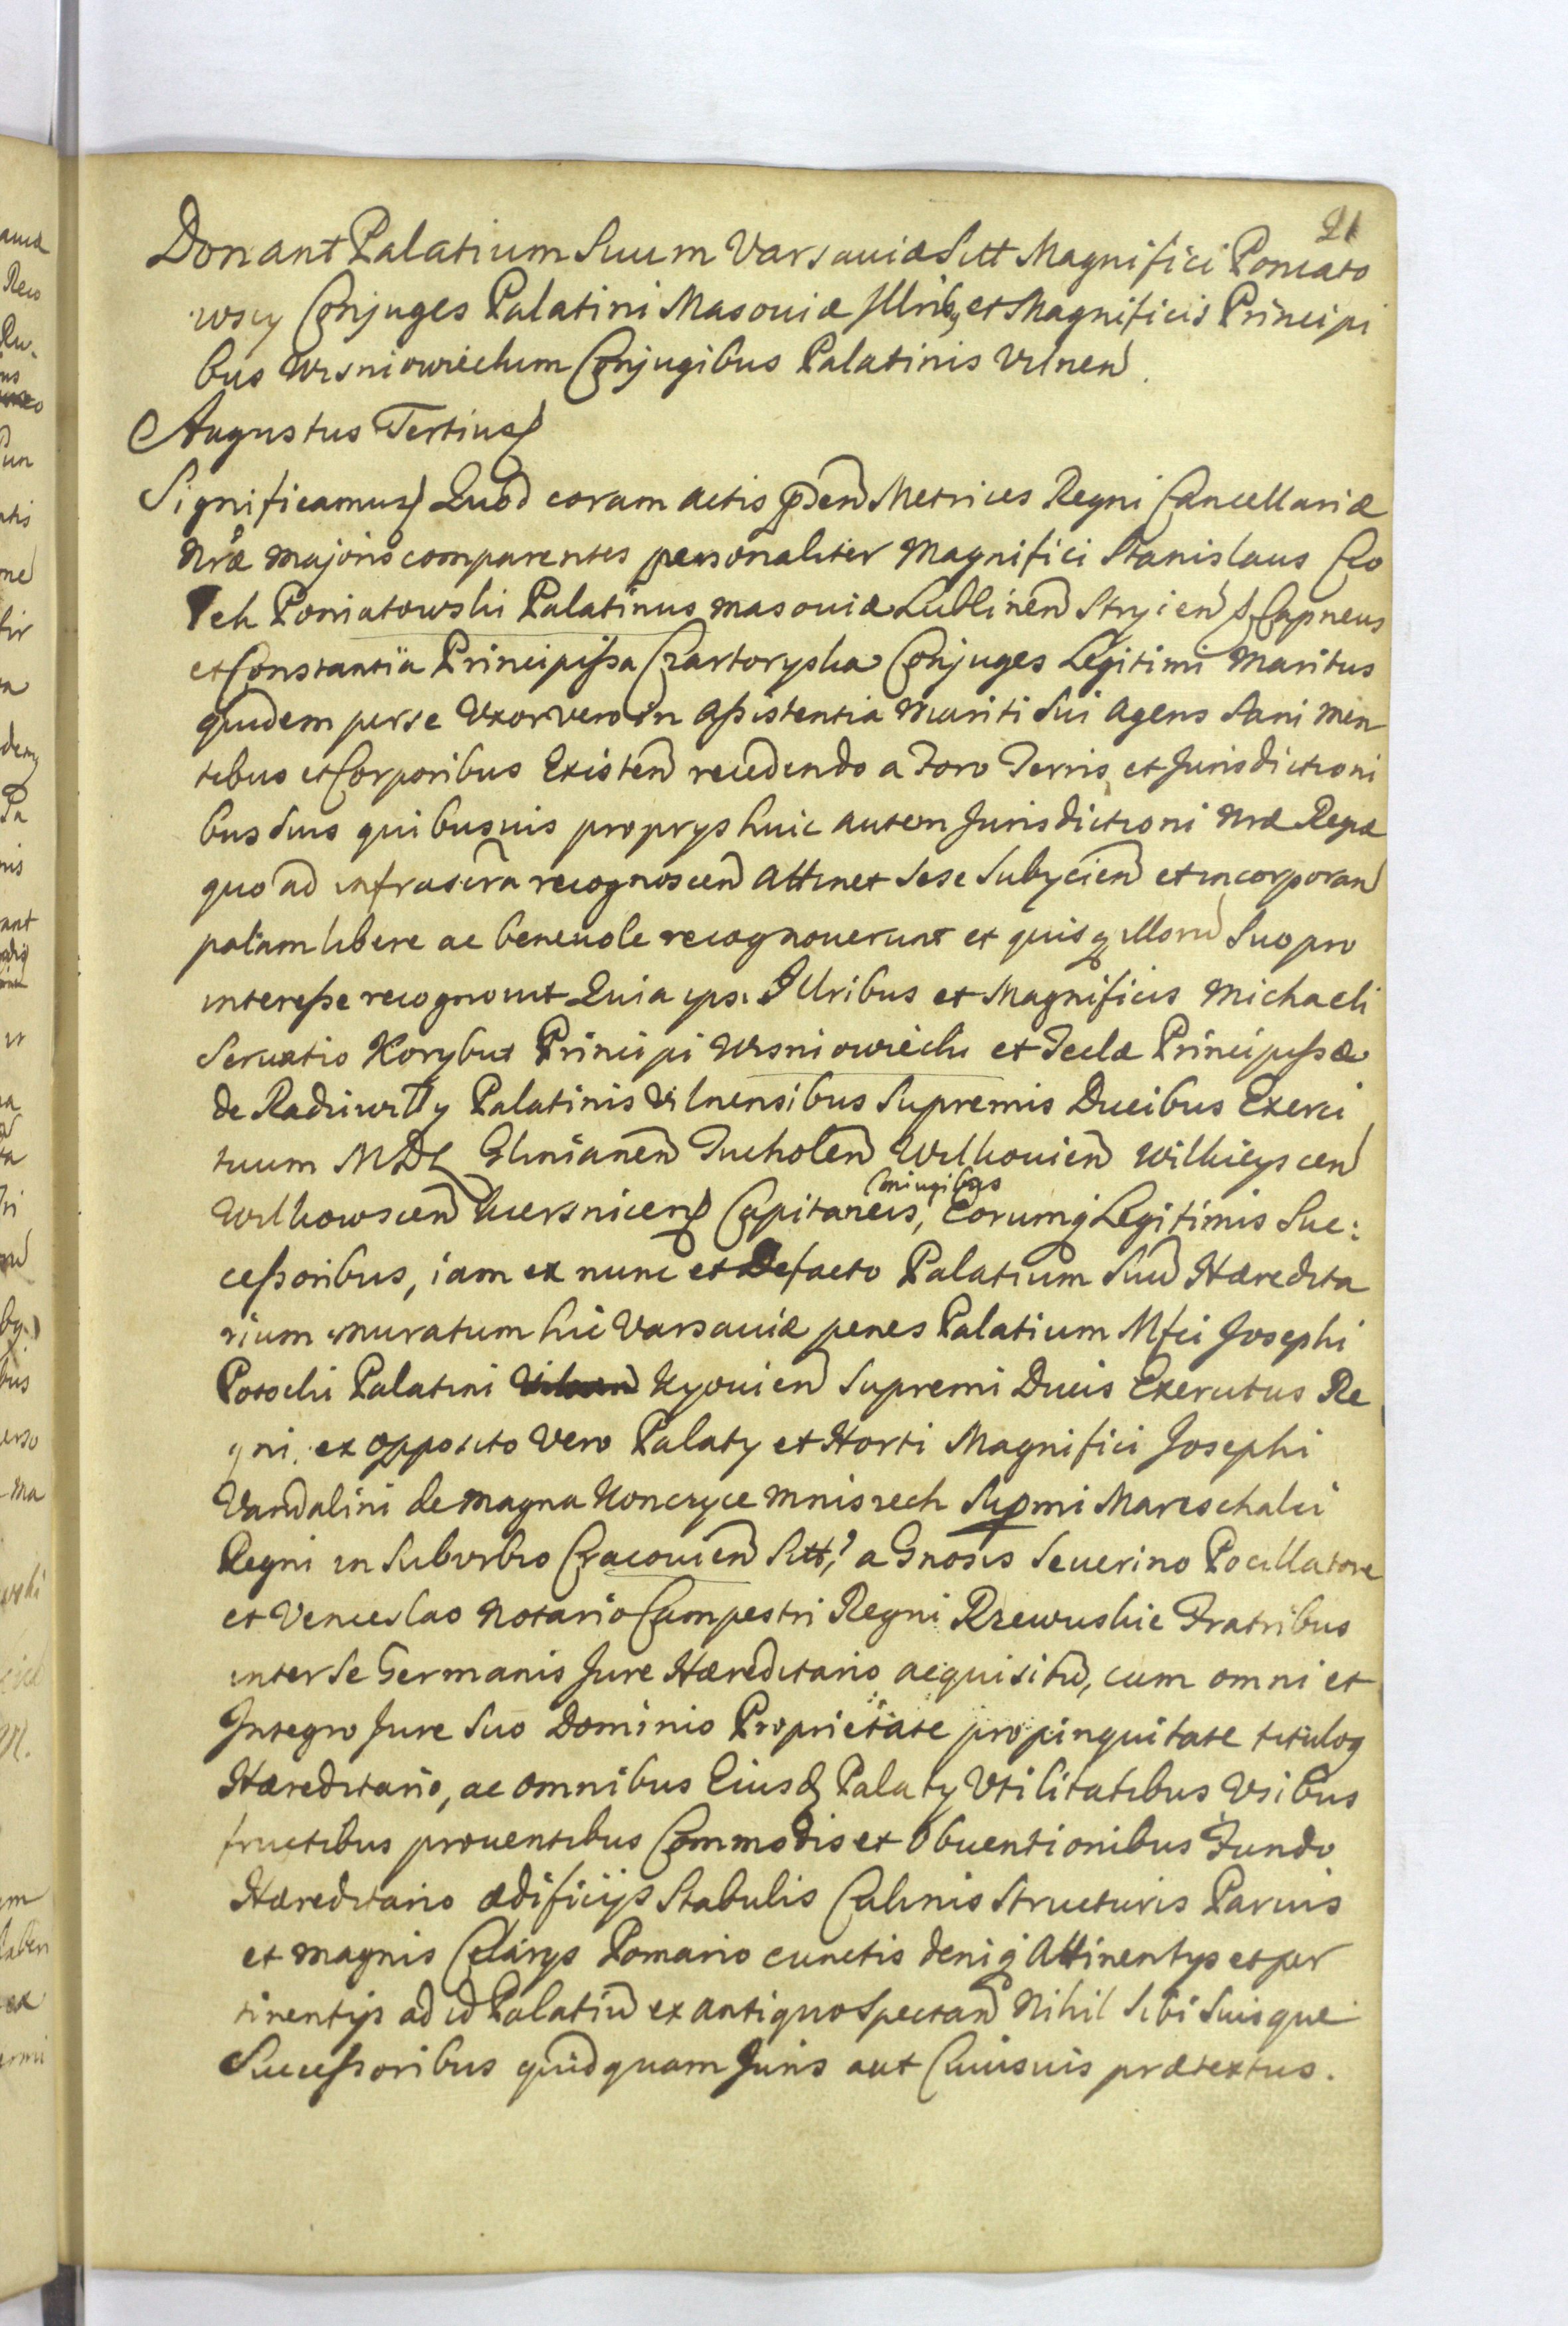 21
Donant Palatium Suum Varsaviæ Sitt Magnifici Poniato
wscy Conjuges Palatini Masoviæ Illribq et Magnificis Principi
bus Wisniowieckim Conjugibus Palatinis Vilnen
Augustus Tertius
Significamus Quod coram actis pnden Metrices Regni Cancellariæ
Nræ majoris comparentes personaliter Magnifici Stanislaus Cio
lek Poniatowski Palatinus masoviæ Lublinen Stryien & Capneus
et Constantia Principissa Czartoryska Conjuges Legitimi Maritus
quidem per se Uxor vero in assistentia Mariti Sui agens Sani men
tibus et Corporibus Existen recedendo a Foro Terris et Jurisdictioni
bus Suis quibusvis proprys huic autem Jurisdictioni Nræ Regiæ
quo ad infrascra recognoscen attinet Sese Subycien et incorporan
palam libere ac benevole recognoverunt et quisq illoru Suo pro
interesse recognovit Quia ipsi Illribus et Magnificis Michaeli
Servatio Korybut Principi Wisniowiecki et Teclæ Principissæ
de Radziwilly Palatinis Vilnensibus Supremis Ducibus Exerci
tuum MDL Glinianen Tucholen Wilkovien Wilkieyscen
Wilkowscen Kiersnicen Capitaneis, Coniugibus Eorumq Legitimis Suc:
cessoribus, iam ex nunc et De facto Palatium Suu Hæredita
rium muratum hic Varsaviæ penes Palatium Mfci Josephi
Potocki Palatini Kyovien Supremi Ducis Exercitus Re
gni, ex opposito Vero Palaty et Horti Magnifici Josephi
Vandalini de magna Konczyce Mniszech Supmi Mareschalci
Regni in Suburbio Cracovien Sitt, a Gnosis Severino Pocillatore
et Venceslao Notario Campestri Regni Rzewuskie Fratribus
inter Se Germanis Jure Hæreditario acquisitu, cum omni et
Integro Jure Suo Dominio Proprietate propinquitate tituloq
Hæreditario, ac omnibus Eiusd Palaty Utilitatibus Usibus
fructibus proventibus Commodis et Obventionibus Fundo
Hæreditario ædificiys Stabulis Culinis Structuris Parvis
et magnis Celarys Pomario cunctis deniq Attinentys et per
tinentys ad id Palatiu ex antiquo Spectan Nihil Sibi Suisque
Successoribus quidquam Juris aut Cuiusvis prætextus.